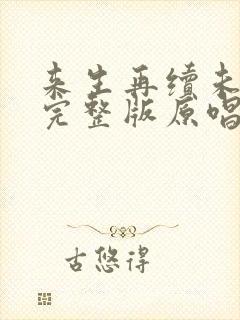 来生再续未
完整版原唱
古悠得